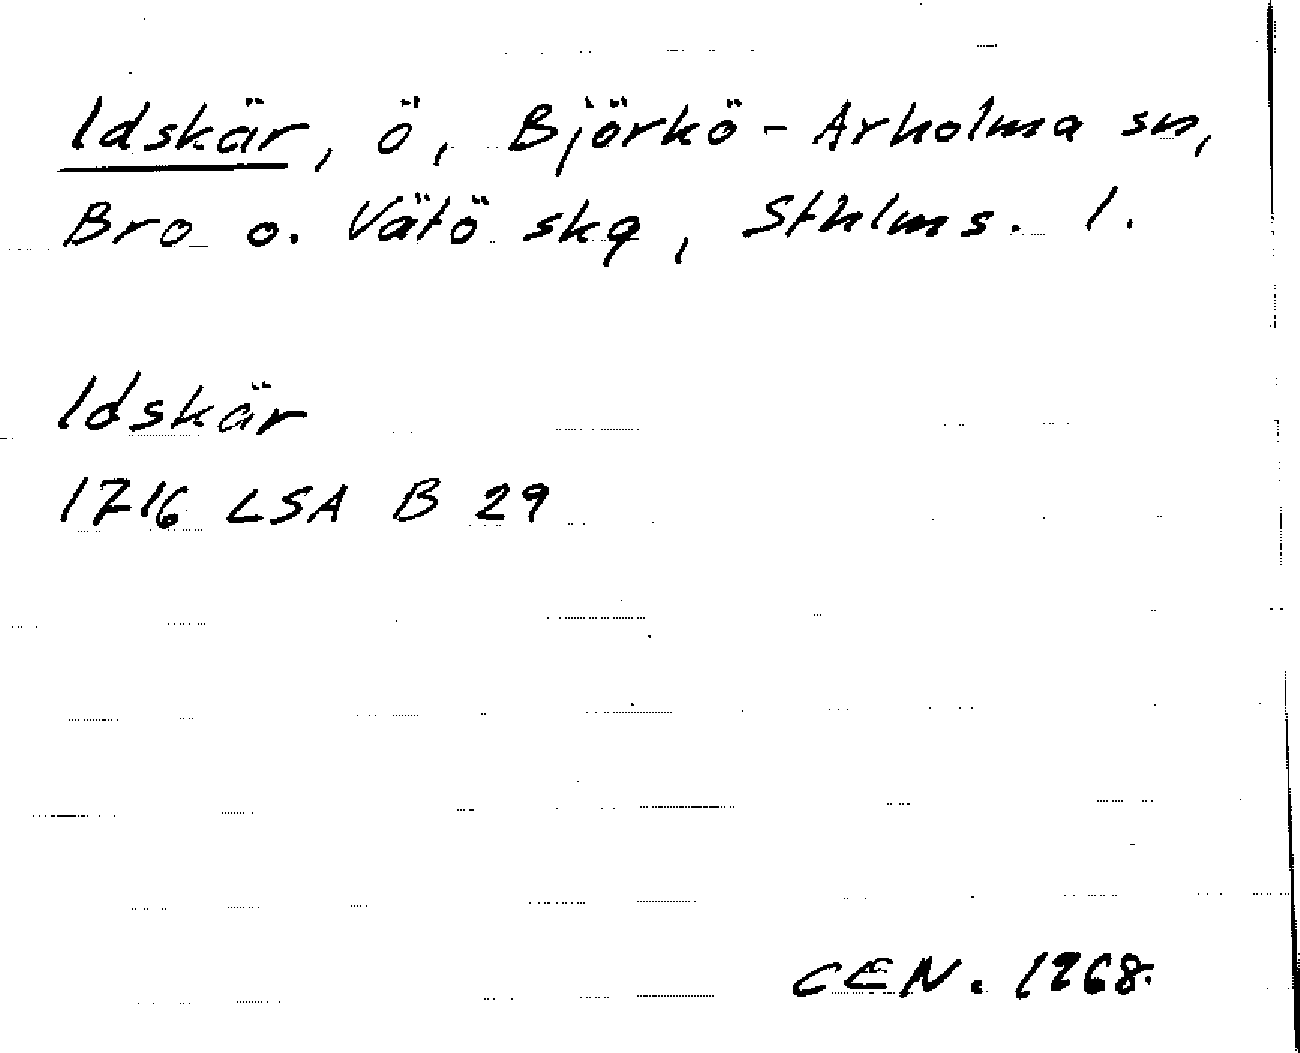 Idskär, ö, Björkö-Arholma sn,
Bro o. Vätö skg, Sthlms. l.
Idskär
1716 LSA B 29
CEN. 1968.